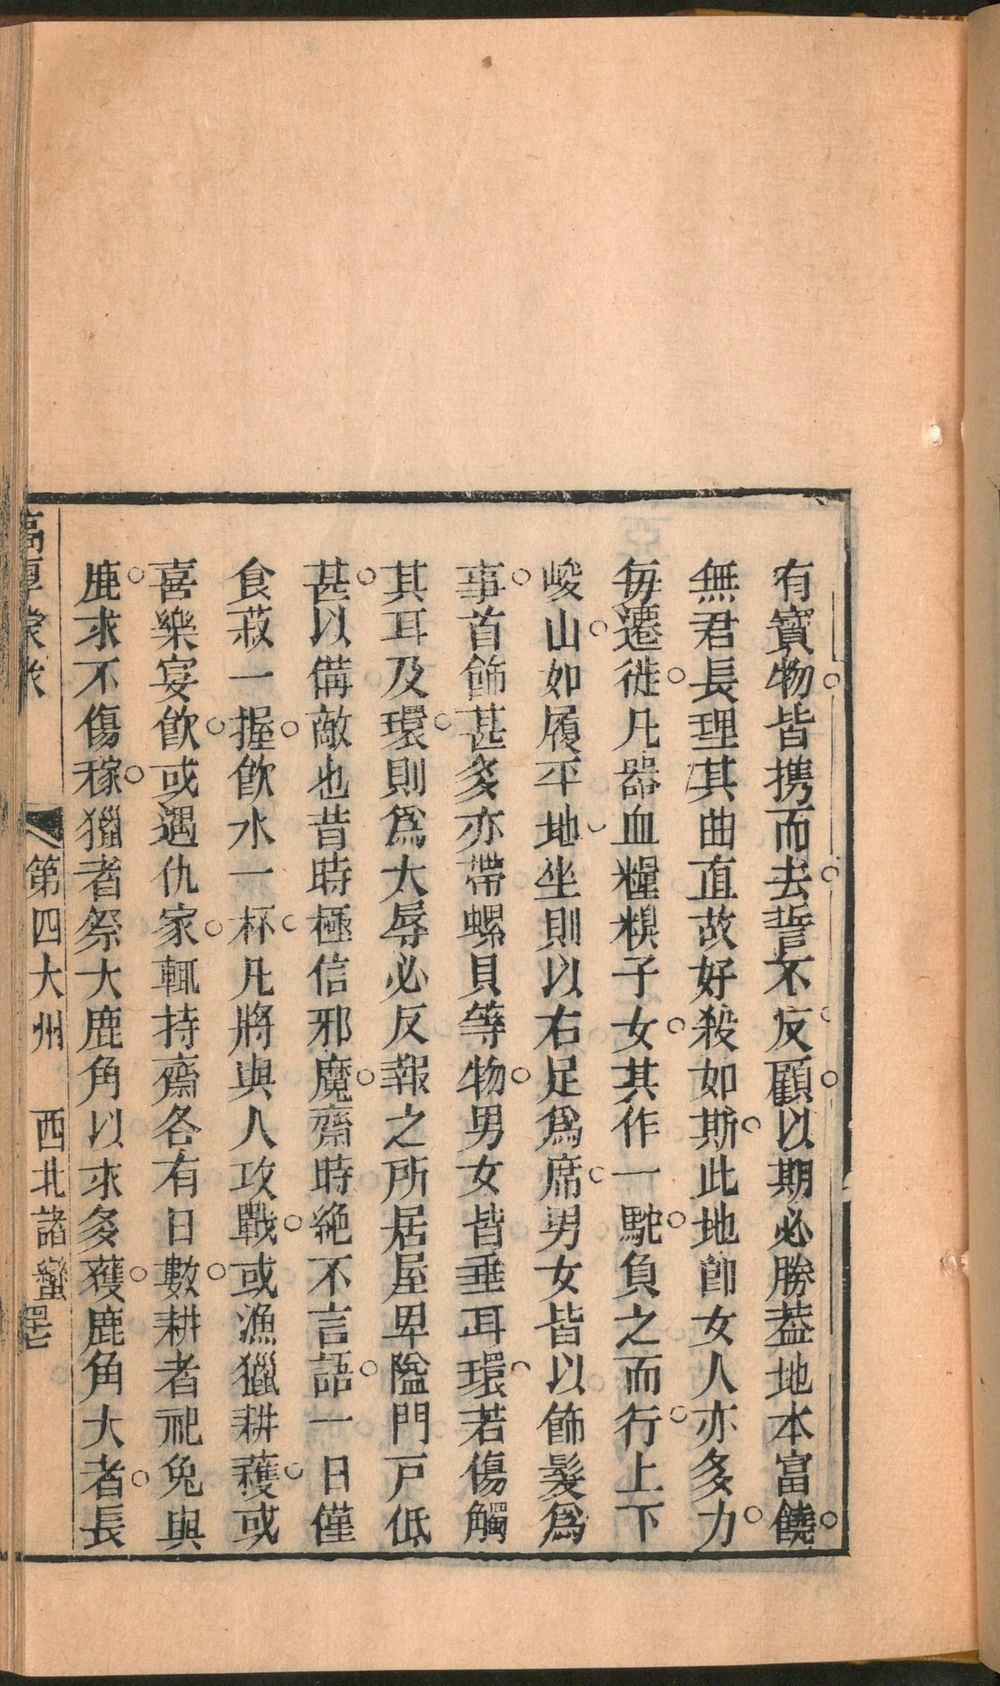 有寶物皆携而去誓不反顧以期必勝葢地本富饒
無君長理其曲直故好殺如斯此地卽女人亦多力
每遷徙凡器血糧糗子女其作一駝負之而行上下
峻山如履平地坐則以右足爲席男女皆以飾髮爲
事首飾甚多亦帶螺貝等物男女皆垂耳環若傷觸
其耳及環則爲大辱必反報之所居屋卑隘門戸低
甚以備敵也昔時極信邪魔齋時絶不言語一日僅
食菽一握飮水一杯凡將與人攻戰或漁獵耕穫或
喜樂宴飮或遇仇家輒持齋各有日數耕者祀兔與
鹿求不傷稼獵者祭大鹿角以求多獲鹿角大者長
高厚蒙求 第四大州 西北諸蠻